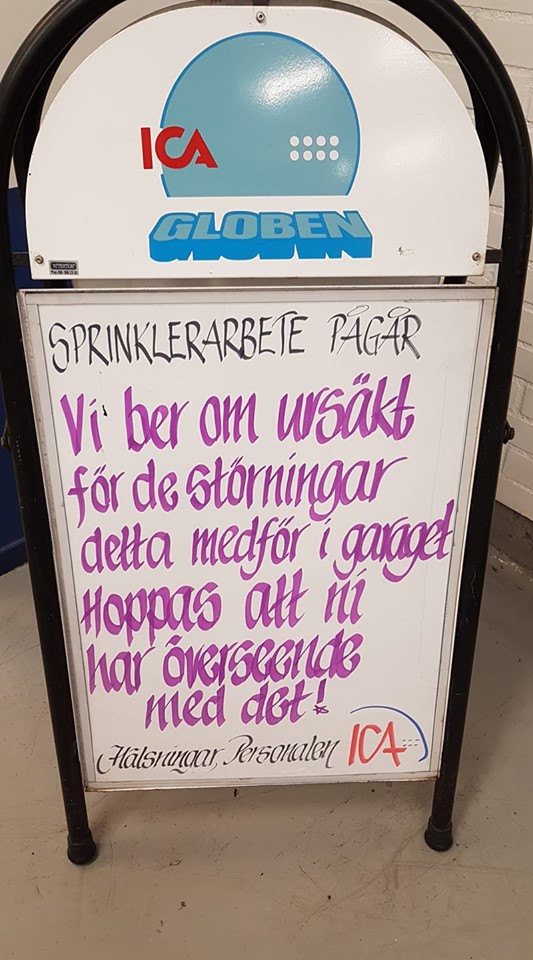 ICA
GLOBEN
SPRINKLERARBETE PÅGÅR
Vi ber om ursäkt
för de störningar
detta medför i garaget
Hoppas att ni
har överseende
med det!
Hälsningar, Personalen ICA